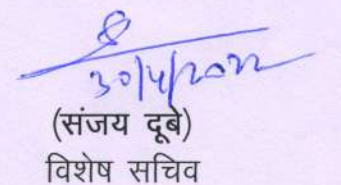 30/4/2022
(संजय दूबे)
विशेष सचिव